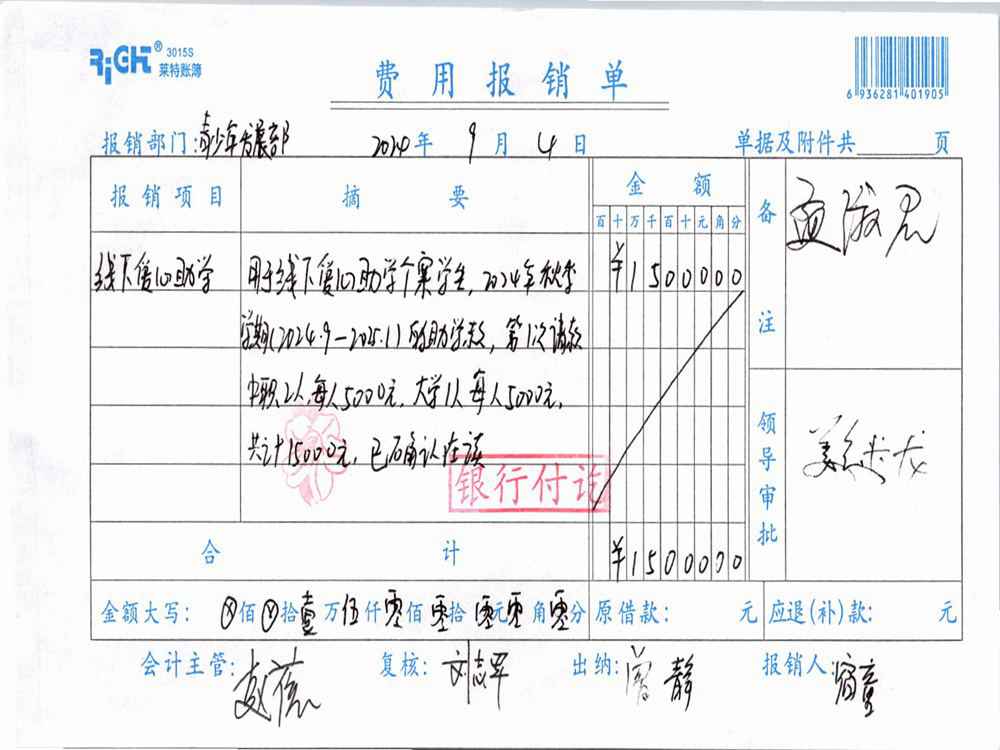 RiGHT® 3015S
莱特账簿
费用报销单
6 936281 401905
报销部门:青少年发展部 2024年 9月 4日 单据及附件共 页
报销项目 摘要 金额 备注
百十万千百十元角分
线下暖心助学 用于线下暖心助学个案学生,2024年秋季 ¥1500000
学期(2024.9-2025.1)的助学款,第1次请款
中职2人,每人5000元,大学1人每人5000元,
共计15000元,已确认在读
银行付讫
领导审批
合计 ¥1500000
金额大写: ⊗佰⊗拾壹万伍仟零佰零拾零元零角零分 原借款: 元 应退(补)款: 元
会计主管: 复核:刘志军 出纳:曾静 报销人: